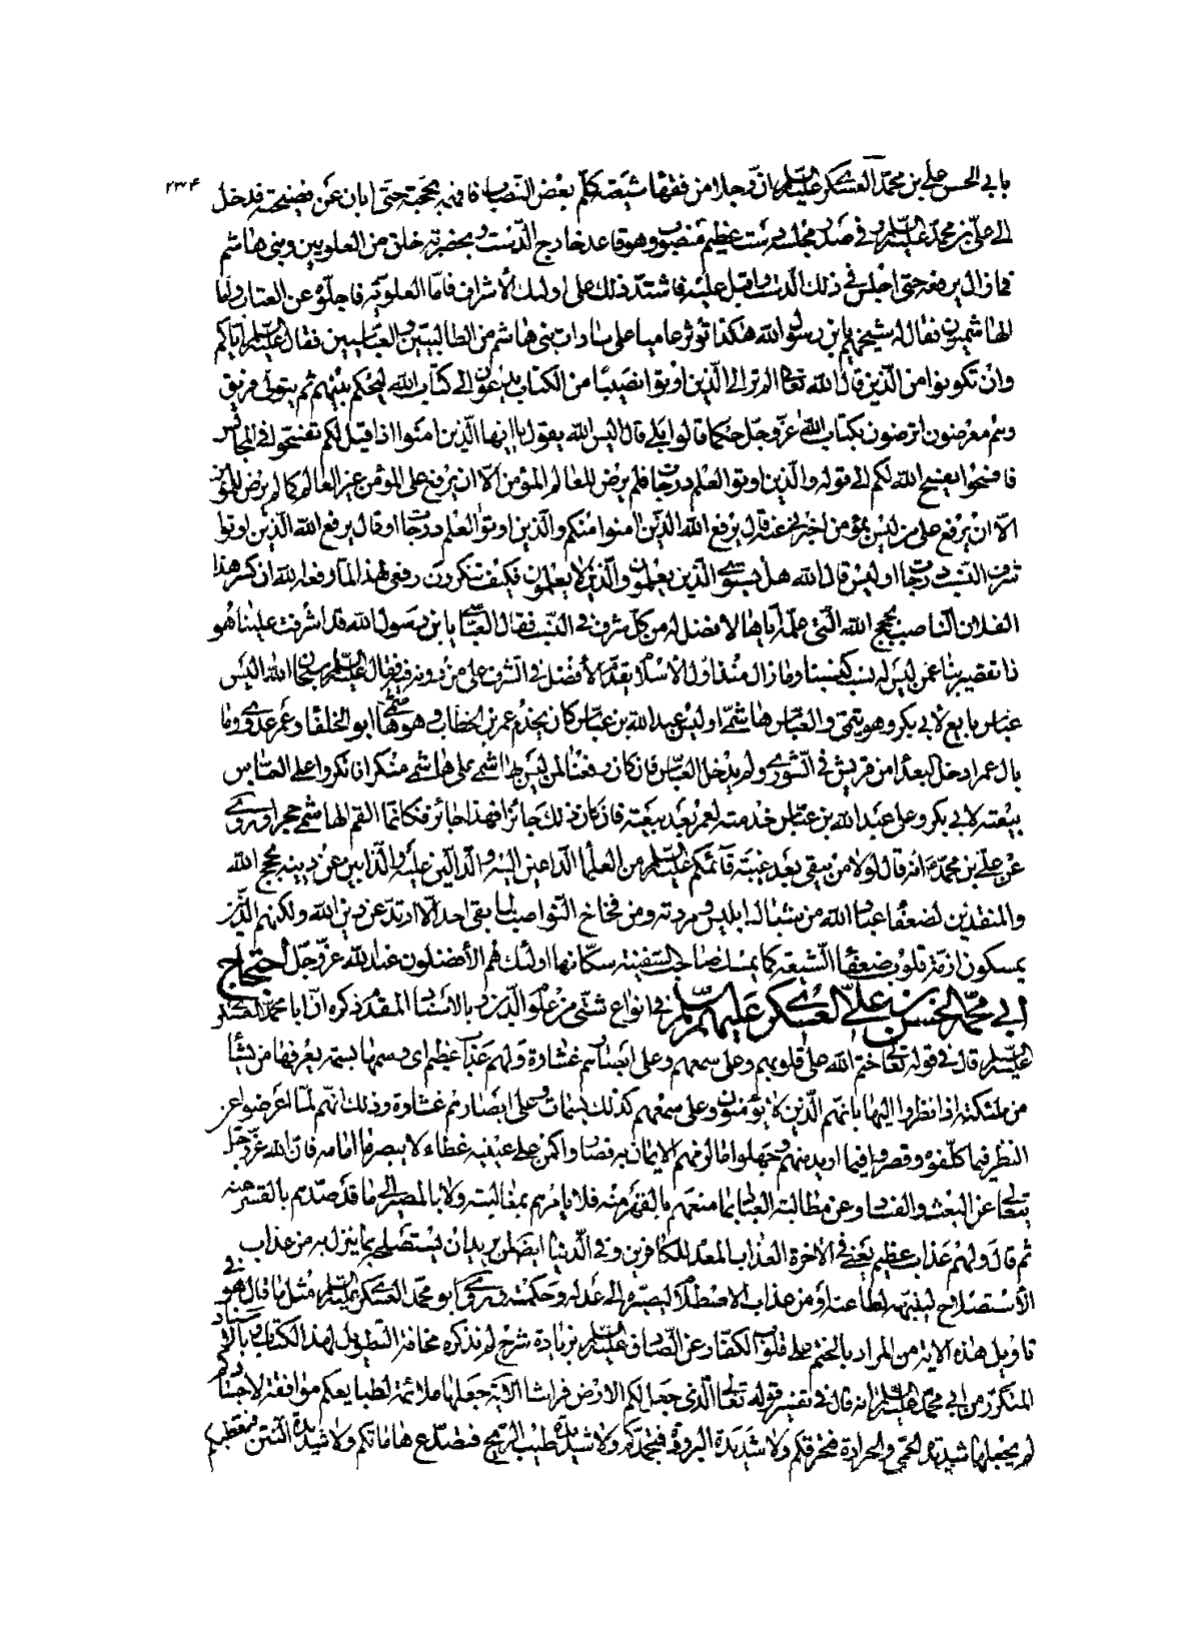 ۲۳۴
بابي الحسن علي بن محمد العسكري عليه السلام ان رجلا من فقهاء شيعته كلم بعض النصاب فافحمه بحجته حتى ابان عن فضيحته فدخل
الى علي بن محمد عليه السلام وفي صدر مجلسه دست عظيم منصوب وهو قاعد خارج الدست وبحضرته خلق من العلويين وبني هاشم
فما زال يرفعه حتى اجلسه في ذلك الدست واقبل عليه فاشتد ذلك على اولئك الأشراف فاما العلوية فاجلوه عن العتاب واما
الهاشميون فقال له شيخهم يابن رسول الله هكذا تؤثر عاميا على سادات بني هاشم من الطالبيين والعباسيين فقال عليه السلام اياكم
وان تكونوا من الذين قال الله تعالى الم تر الى الذين اوتوا نصيبا من الكتاب يدعون الى كتاب الله ليحكم بينهم ثم يتولى فريق
وهم معرضون اترضون بكتاب الله عز وجل حكما قالوا بلى قال اليس الله يقول يا ايها الذين امنوا اذا قيل لكم تفسحوا في المجالس
فافسحوا يفسح الله لكم الى قوله والذين اوتوا العلم درجات فلم يرض للعالم المؤمن الا ان يرفع على المؤمن غير العالم كما لم يرض للمؤمن
الا ان يرفع على من ليس بمؤمن اخبروني عنه قال يرفع الله الذين امنوا منكم والذين اوتوا العلم درجات او قال يرفع الله الذين اوتوا
شرف النسب درجات اوليس قال الله هل يستوي الذين يعلمون والذين لا يعلمون فكيف تنكرون رفعي لهذا لما رفعه الله ان كسر هذا
الفلان الناصب بحجج الله التي علمه اياها لافضل له من كل شرف في النسب فقال العباسي يابن رسول الله قد اشرفت علينا هو
ذا تقصير بنا عمن ليس له نسب كنسبنا وما زال منذ اول الاسلام يقدم الأفضل في الشرف على من دونه فيه فقال عليه السلام سبحان الله اليس
عباس بايع لابي بكر وهو تيمي والعباس هاشمي اوليس عبد الله بن عباس كان يخدم عمر بن الخطاب وهو هاشمي ابو الخلفاء وعمر عدوي وما
بال عمر ادخل البعداء من قريش في الشورى ولم يدخل العباس فان كان رفعنا لمن ليس بهاشمي على هاشمي منكرا فانكروا على العباس
بيعته لابي بكر وعلى عبد الله بن عباس خدمته لعمر بعد بيعته فان كان ذلك جائزا فهذا جائز فكانما القم الهاشمي حجرا وروي
عن علي بن محمد انه قال لولا من يبقى بعد غيبة قائمكم عليه السلام من العلماء الداعين اليه والدالين عليه والذابين عن دينه بحجج الله
والمنقذين لضعفاء عباد الله من شباك ابليس ومردته ومن فخاخ النواصب لما بقي احد الا ارتد عن دين الله ولكنهم الذين
يمسكون ازمة قلوب ضعفاء الشيعة كما يمسك صاحب السفينة سكانها اولئك هم الأفضلون عند الله عز وجل احتجاج
ابي محمد الحسن بن علي العسكري عليهما السلام في انواع شتى من علوم الدين وبالاسناد المقدم ذكره ان ابا محمد العسكري
عليه السلام قال في قوله تعالى ختم الله على قلوبهم وعلى سمعهم وعلى ابصارهم غشاوة ولهم عذاب عظيم اي وسمها بسمة يعرفها من يشاء
من ملئكته اذا نظروا اليها بانهم الذين لا يؤمنون وعلى سمعهم كذلك بسمات وعلى ابصارهم غشاوة وذلك انهم لما اعرضوا عن
النظر فيما كلفوه وقصروا فيما اريد منهم وجهلوا ما لزمهم الايمان به فصاروا كمن على عينيه غطاء لا يبصر ما امامه فان الله عز وجل
يتعالى عن العبث والفساد وعن مطالبة العباد بما منعهم بالقهر منه فلا يامرهم بمغالبته ولا بالمصير الى ما قد صدهم بالقسر عنه
ثم قال ولهم عذاب عظيم يعني في الاخرة العذاب المعد للكافرين وفي الدنيا ايضا لمن يريد ان يستصلحه بما ينزل به من عذاب
الأستصلاح لينبهه لطاعته او من عذاب الاصطلام ليصيره الى عدله وحكمته وروي ابو محمد العسكري عليه السلام مثل ما قال هو في
تاويل هذه الاية من المراد بالختم على قلوب الكفار عن الصادق عليه السلام بزيادة شرح لم نذكره مخافة التطويل لهذا الكتاب وبالاسناد
المتكرر من ابي محمد عليه السلام انه قال في تفسير قوله تعالى الذي جعل لكم الارض فراشا الاية جعلها ملائمة لطبايعكم موافقة لاجسادكم
لم يجعلها شديدة الحمى والحرارة فتحرقكم ولا شديدة البرودة فتجمدكم ولا شديدة طيب الريح فتصدع هاماتكم ولا شديدة النتن فتعطبكم